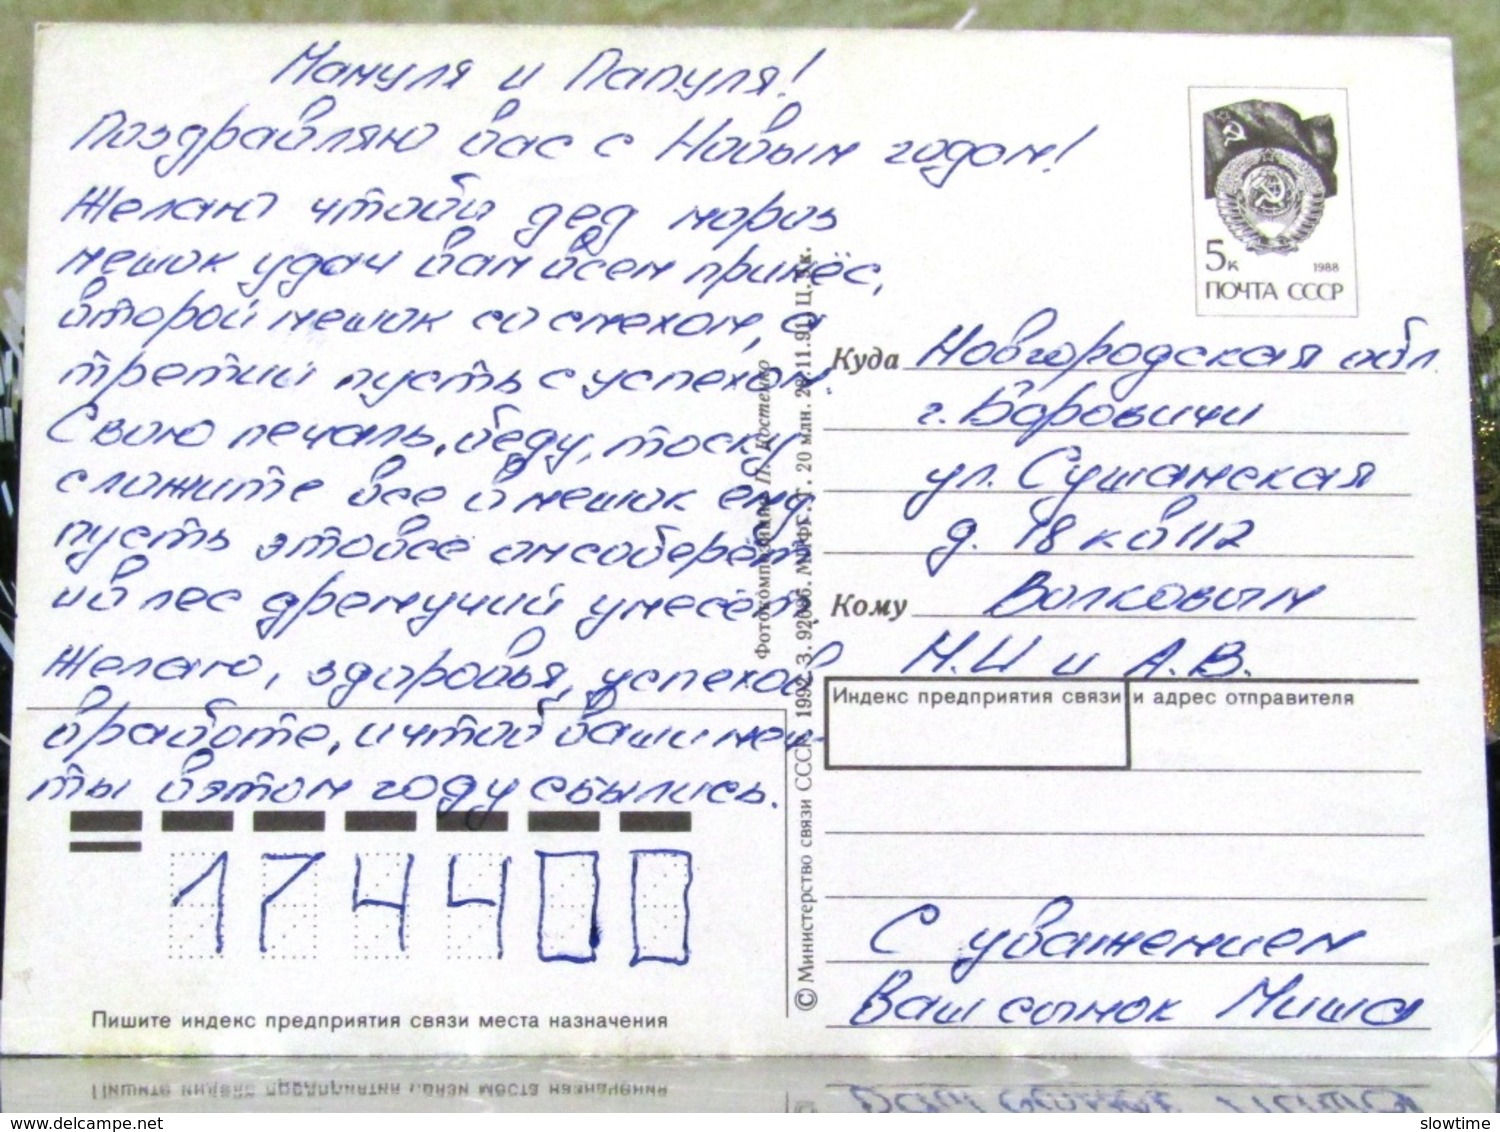 Мамуля и Папуля!
Поздравляю вас с Новым годом!
Желаю чтобы дед мороз
мешок удач вам всем принёс,
второй мешок со смехом, а
третий пусть с успехом.
Свою печаль, беду, тоску
сложите все в мешок ему
пусть это все он соберёт
и в лес дремучий унесёт.
Желаю, здоровья, успехов
в работе, и чтоб ваши меч-
ты в этом году сбылись.
174400
Пишите индекс предприятия связи места назначения
© Министерство связи СССР. 1992. З. 92036. МПФГ. Т. 20 млн. 11.91. Ц. к.
Фотокомпозиция П. Костенко
5к
1988
ПОЧТА СССР
Куда Новгородская обл.
г. Боровичи
ул. Сушанская
д. 18 кв 112
Кому Волковым
Н.И и А.В.
Индекс предприятия связи и адрес отправителя
С уважением
Ваш сынок Миша
delcampe.net
slowtime